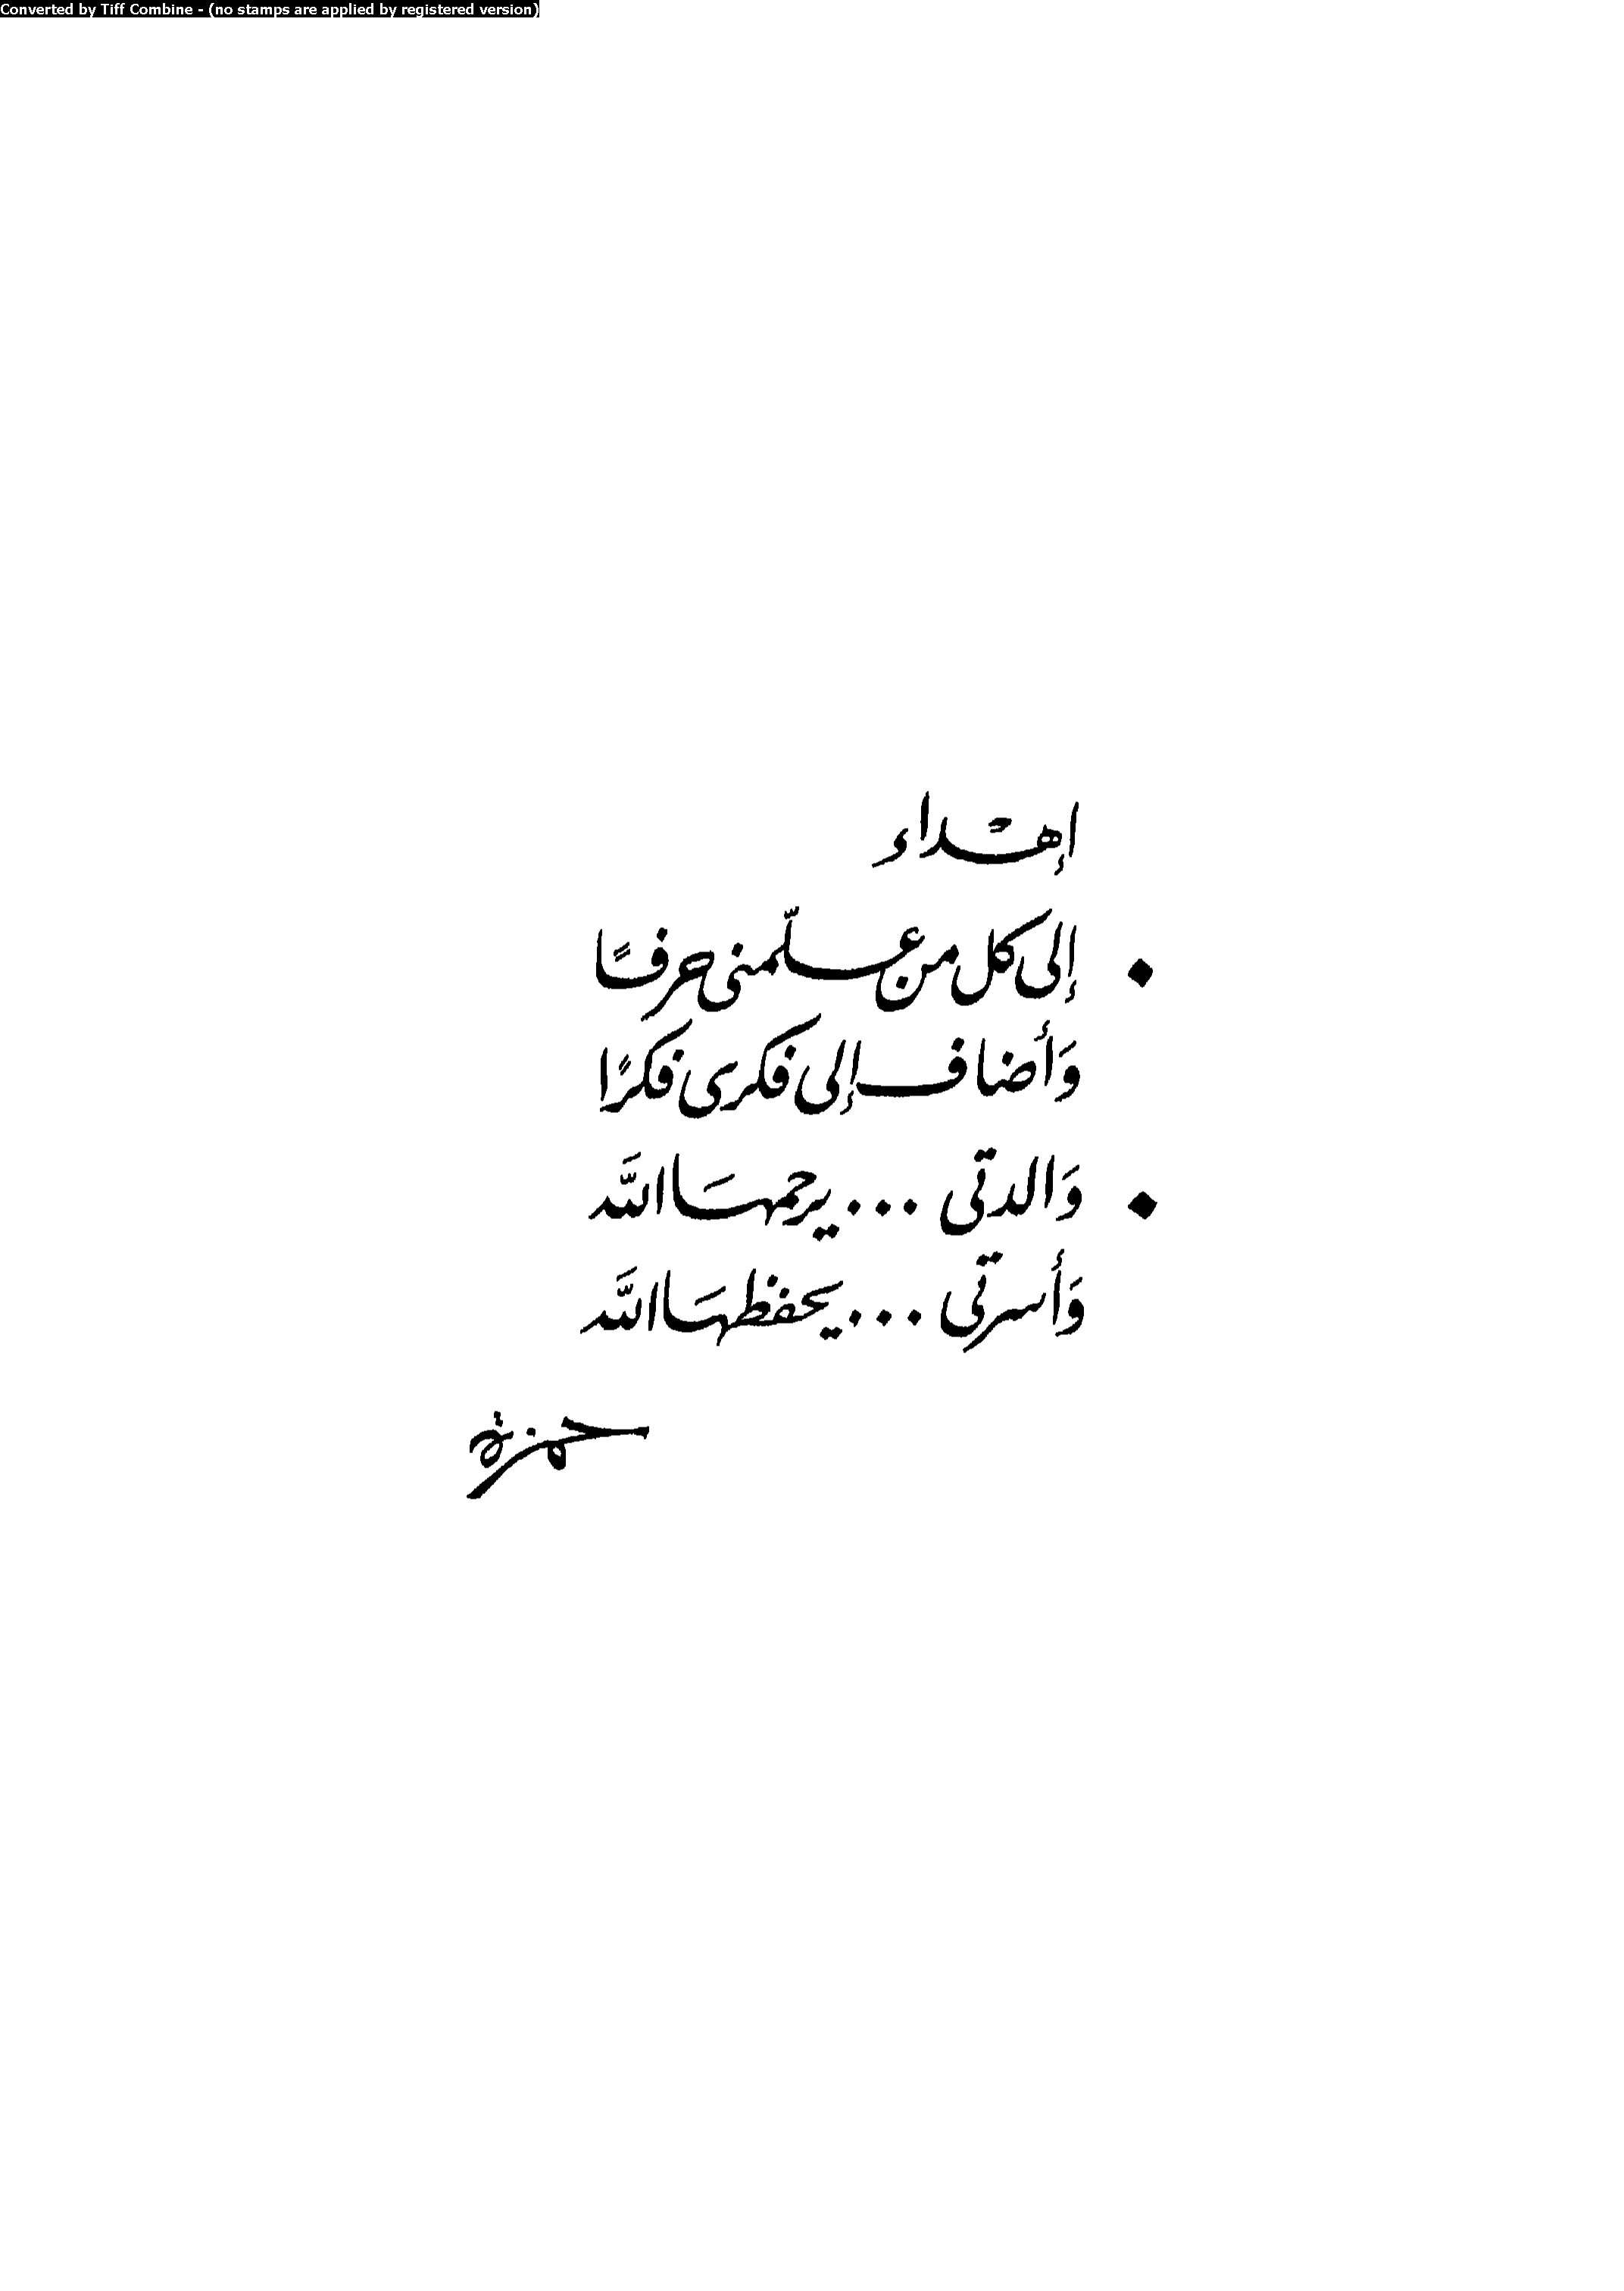 Converted by Tiff Combine - (no stamps are applied by registered version)
إهْداء
• إلى كل من علّمنى حرفًا
وَأضاف إلى فكرى فكرًا
• وَالدتى ... يرحمهَا اللَّه
وَأسرتى ... يحفظهَا اللَّه
حمزة